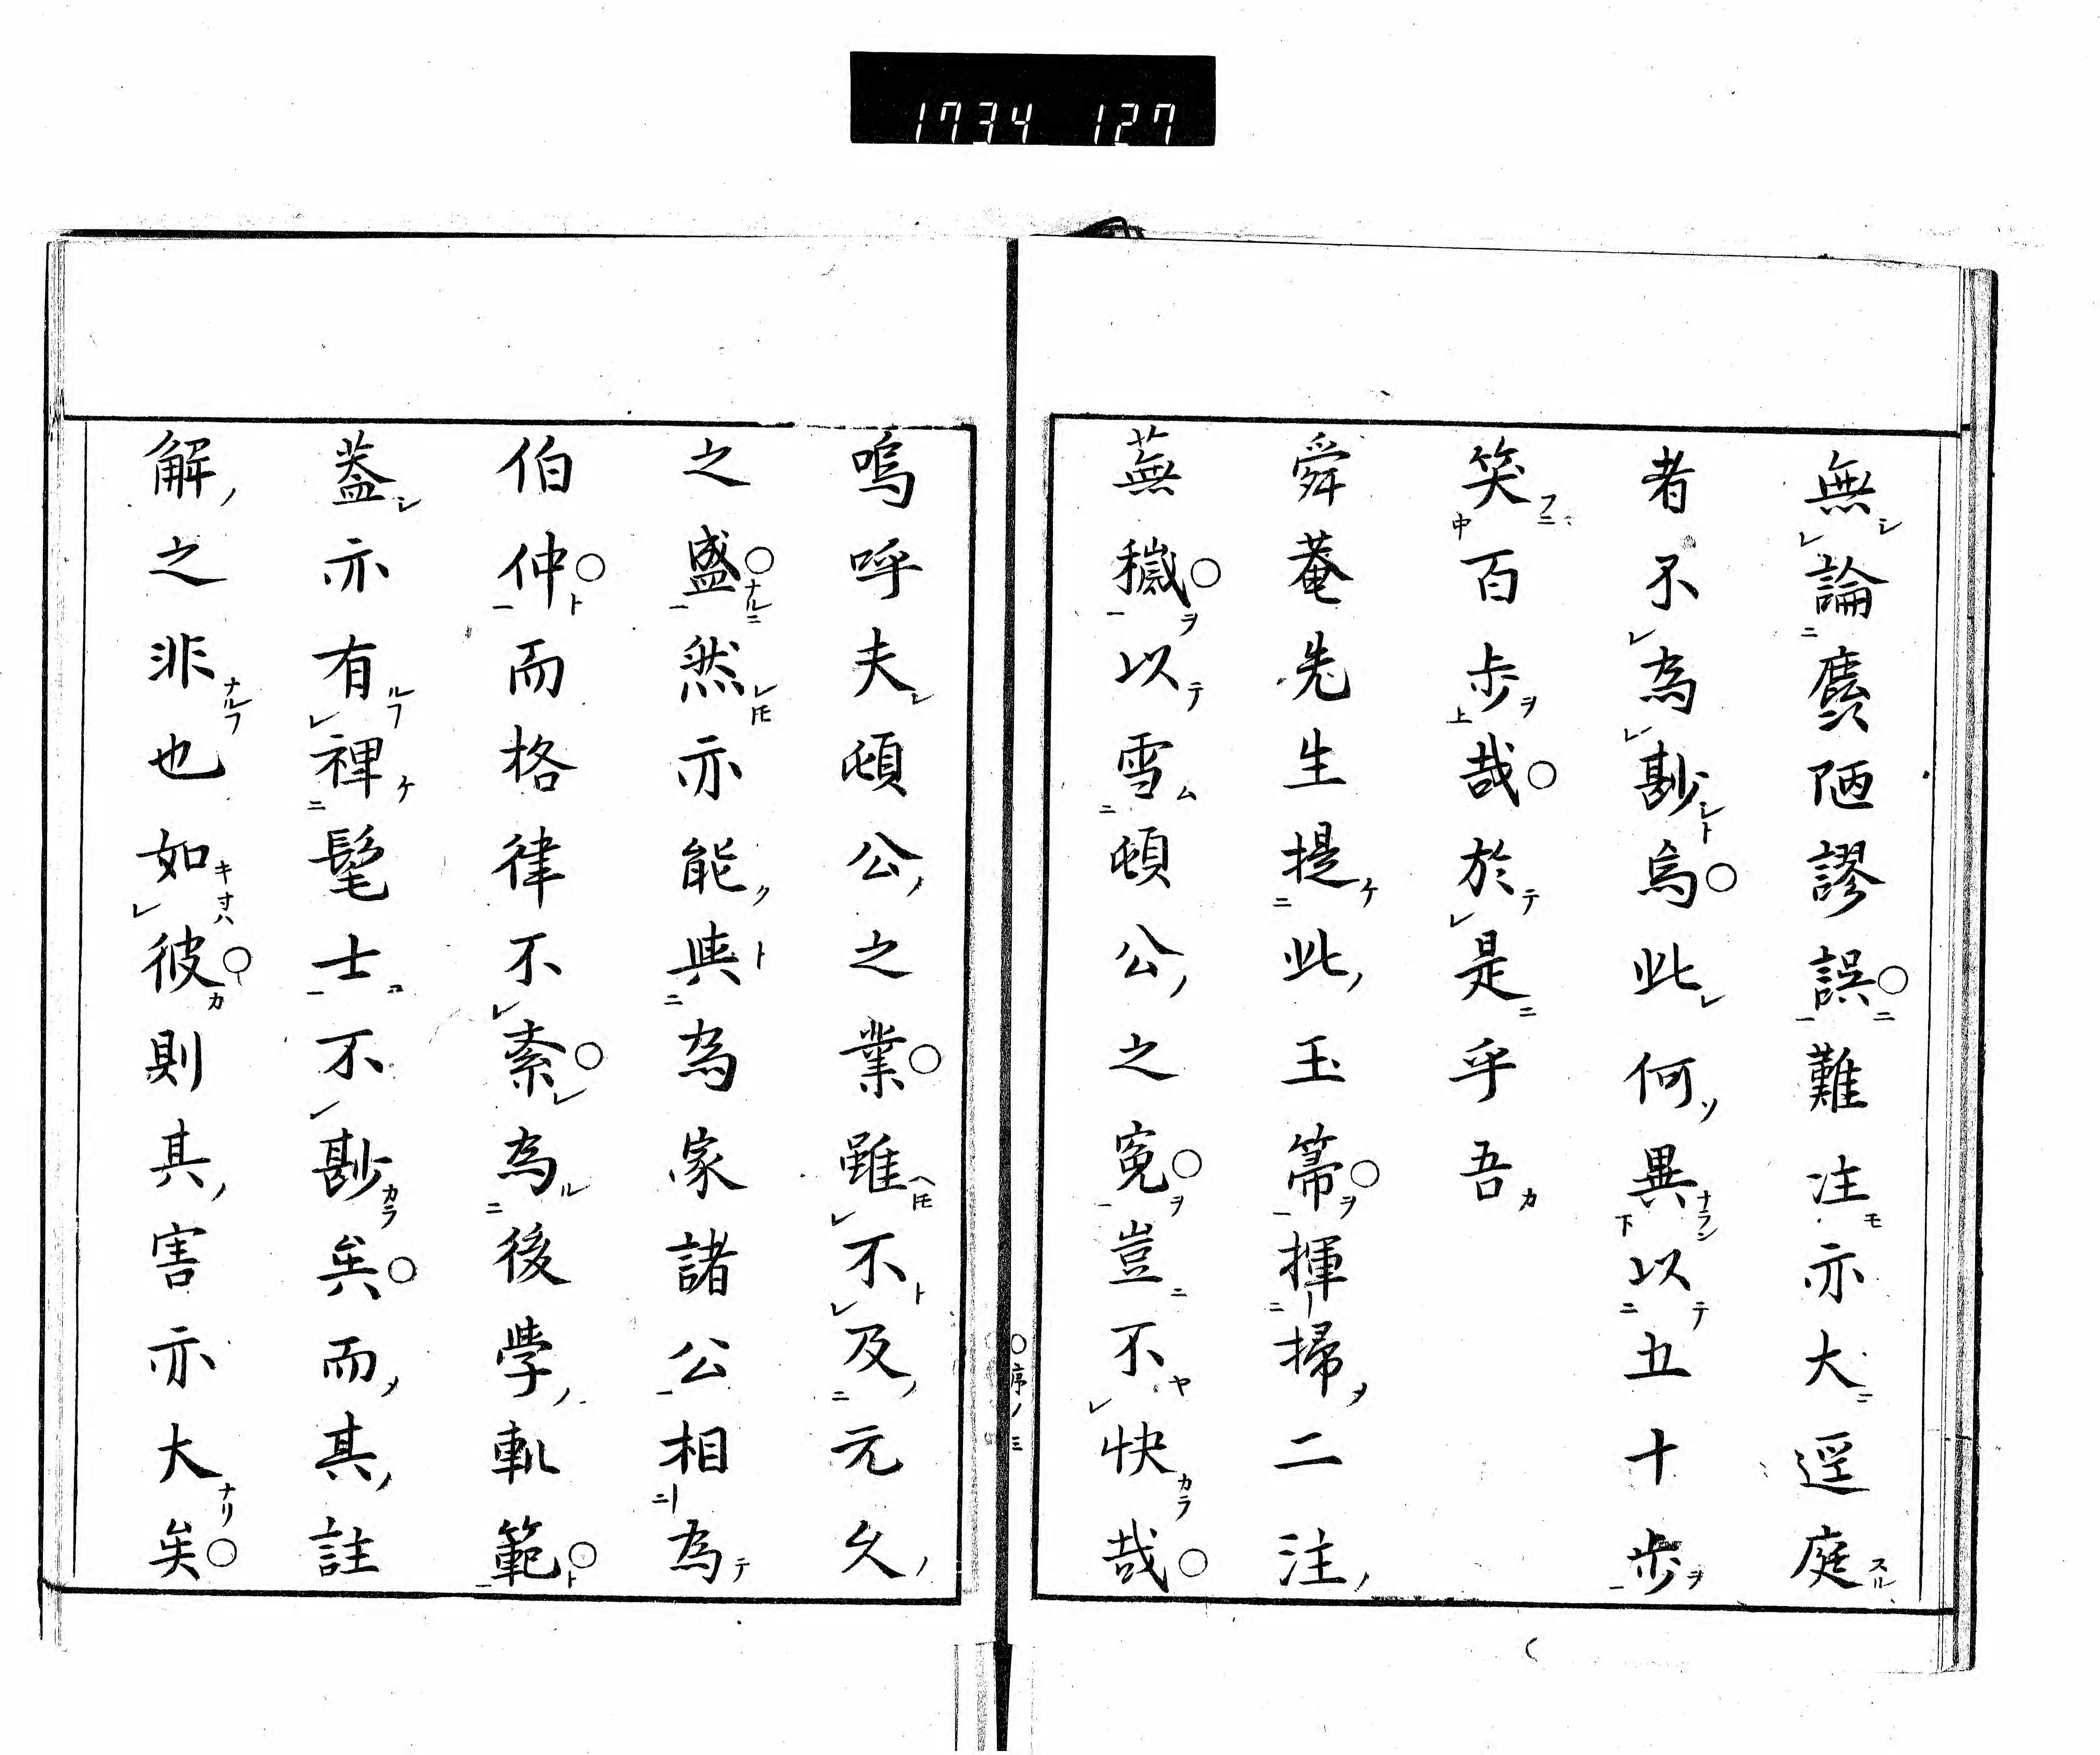 1734 127
無論贋陋謬誤難注亦大逕庭
者不為尠烏此何異以五十歩
笑百歩哉於是乎吾
舜菴先生提此玉箒揮掃二注
蕪穢以雪頓公之寃豈不快哉
○序ノ三
嗚呼夫頓公之業雖不及元久
之盛然亦能與為家諸公相為
伯仲而格律不紊為後学軌範
葢亦有裨髦士不尠矣而其註
解之非也如彼則其害亦大矣